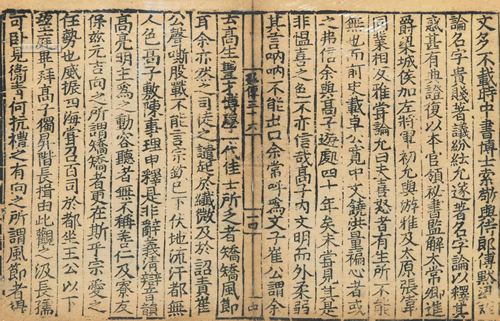 文多不載時中書博士索敞與侍郎傅默梁祚
論名字貴賤著議紛紜允遂著名字論以釋其
惑甚有典證復以本官領祕書監解太常卿進
爵梁城侯加左將軍初允與游雅及太原張偉
同業相友雅嘗論允曰夫喜怒者有生所不能
無也而前史載卓公寬中文饒洪量褊心者或
之弗信余與高子遊處四十年矣未嘗見其是
非慍喜之色不亦信哉高子內文明而外柔弱
其言吶吶不能出口余常呼爲文子崔公謂余
列傳三十六
十四
云高生豐才博學一代佳士所乏者矯矯風節
耳余亦然之司徒之譴起於纖微及於詔責崔
公聲嘶股戰不能言宗欽已下伏地流汗都無
人色高子敷陳事理申釋是非辭義清辯音韻
高亮明主爲之動容聽者無不稱善仁及寮友
保茲元吉向之所謂矯矯者更在斯乎宗愛之
任勢也威振四海嘗召百司於都坐王公以下
望庭畢拜高子獨升階長揖由此觀之汲長孺
可卧見衛青何抗禮之有向之所謂風節者得